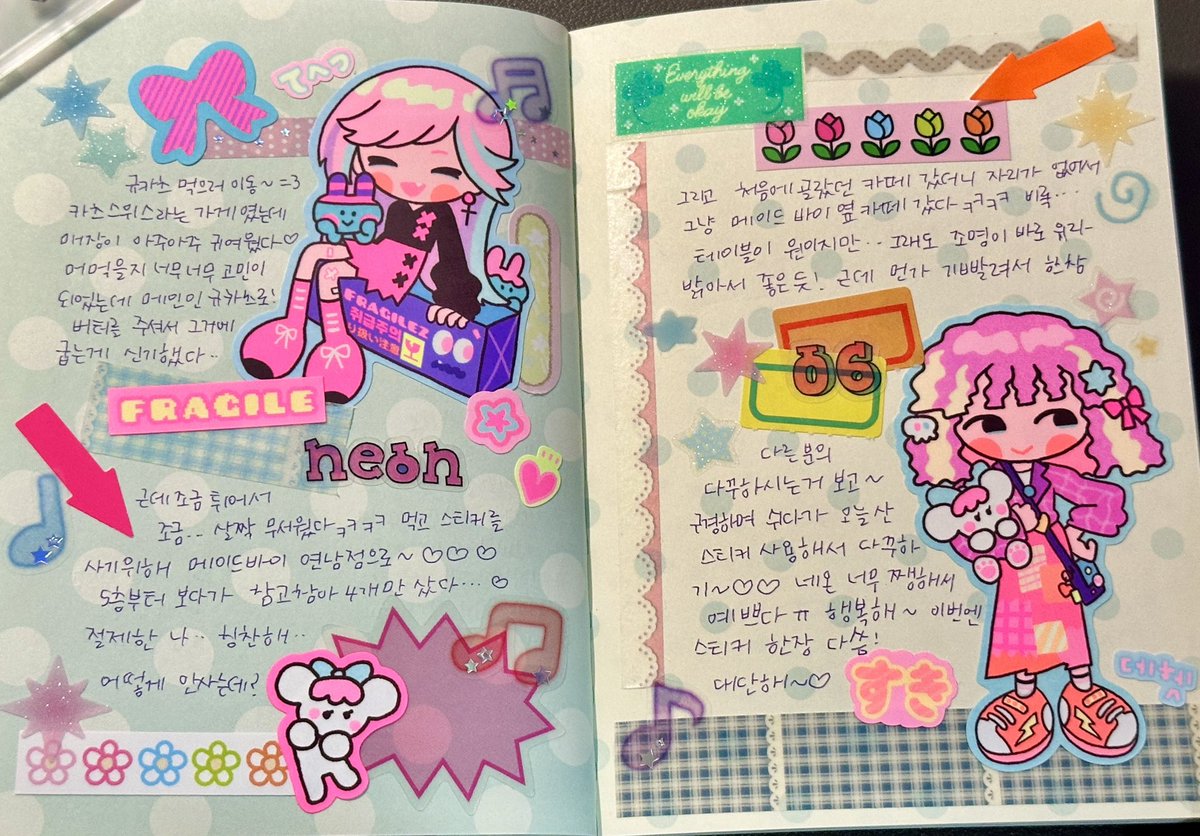 てへっ
규카츠 먹으러 이동~ =3
카츠스위스라는 가게였는데
매장이 아주아주 귀여웠다♡
머 먹을지 너무너무 고민이
되었는데 메인인 규카츠로!
버터를 주셔서 그거에
굽는게 신기했다..
FRAGILEZ
취급주의
り扱い注意
FRAGILE
neon
근데 조금 튀어서
조금... 살짝 무서웠다ㅋㅋㅋ 먹고 스티커를
사기위해 메이드바이 연남점으로~ ♡♡♡
5층부터 보다가 참고참아 4개만 샀다... ♡
절제한 나.. 칭찬해..
어떻게 안사는데?
Everything
will be
okay
그리고 처음에 골랐던 카페 갔더니 자리가 없어서
그냥 메이드 바이 옆 카페 갔다ㅋㅋㅋ 비록...
테이블이 원이지만.. 그래도 조명이 바로 위라
밝아서 좋은듯! 근데 먼가 기빨려서 한참
66
다른분의
다꾸하시는거 보고~
구경하며 쉬다가 오늘산
스티커 사용해서 다꾸하
기~♡♡ 네온 너무 쨍해서
예쁘다 ㅠ 행복해~ 이번엔
스티커 한장 다씀!
대단해~♡
すき
데헷